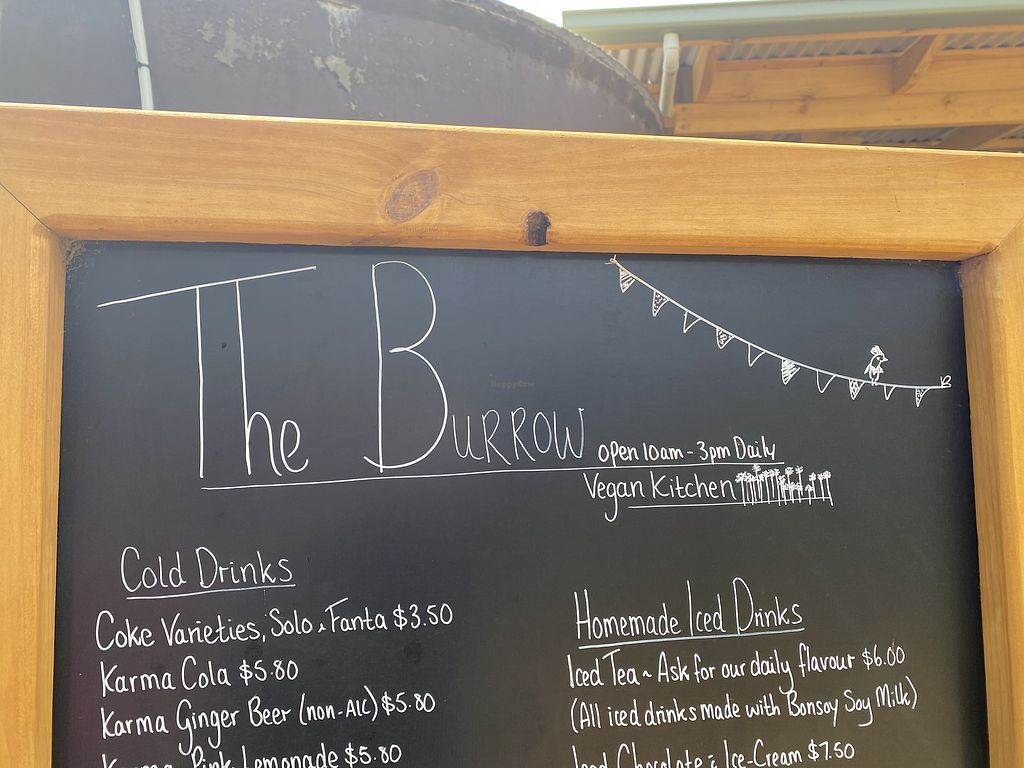 The Burrow
open 10am - 3pm Daily
Vegan Kitchen
Cold Drinks
Coke Varieties, Solo & Fanta $3.50
Karma Cola $5.80
Karma Ginger Beer (non-Alc) $5.80
Karma Pink Lemonade $5.80
Homemade Iced Drinks
Iced Tea ~ Ask for our daily flavour $6.00
(All iced drinks made with Bonsoy Soy Milk)
Iced Chocolate & Ice-Cream $7.50
HappyCow